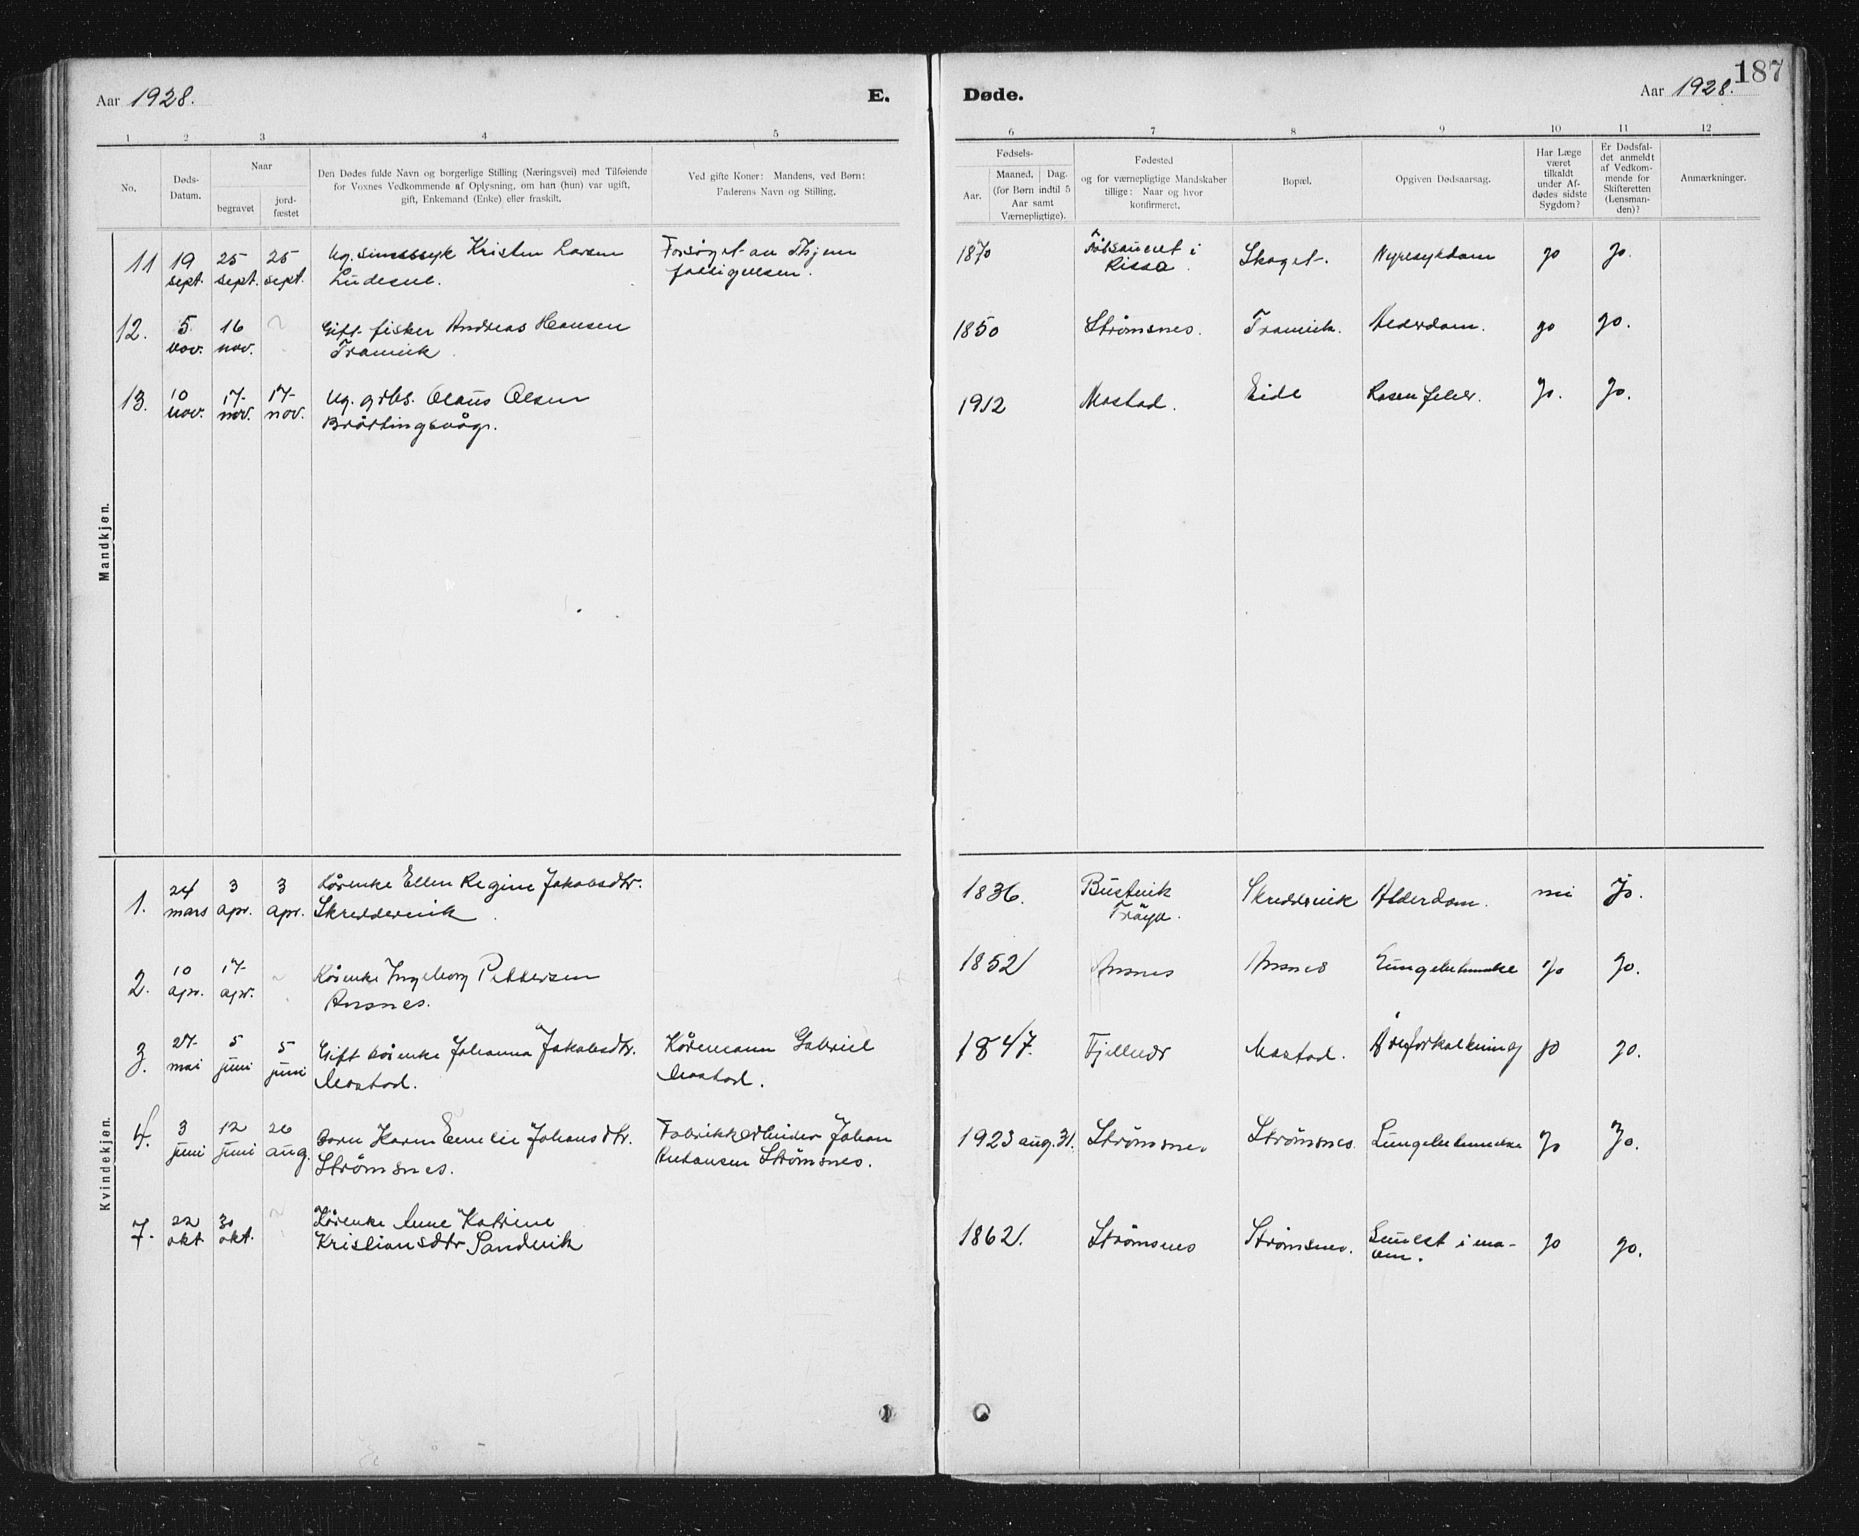 187
Aar 1928.
E.
Døde.
Aar 1928.
1 2 3 4 5 6 7 8 9 10 11 12
No.
Døds-
Datum.
Naar
begravet
jord-
fæstet
Den Dødes fulde Navn og borgerlige Stilling (Næringsvei) med Tilføiende
for Voxnes Vedkommende af Oplysning, om han (hun) var ugift,
gift, Enkemand (Enke) eller fraskilt.
Ved gifte Koner: Mandens, ved Børn:
Faderens Navn og Stilling.
Fødsels-
Aar.
Maaned. Dag.
(for Børn indtil 5
Aar samt
Værnepligtige).
Fødested
og for værnepligtige Mandskaber
tillige: Naar og hvor
konfirmeret.
Bopæl.
Opgiven Dødsaarsag.
Har Læge
været
tilkaldt
under Af-
dødes sidste
Sygdom?
Er Dødsfal-
det anmeldt
af Vedkom-
mende for
Skifteretten
(Lensman-
den)?
Anmærkninger.
Mandkjøn.
11 19 25 25 Ug. sinnssyk Kristen Larsen 1870 i Skaget. Nyresykdom jo jo.
sept. sept. sept. Rissa.
12. 5 16 Gift fisker Andreas Hansen 1850 Strømsnes. Framvik. Alderdom. jo jo.
nov. nov. Framvik
13. 10 17 17 Ug. Olaus Olsen 1912 Mostad. Eide Rosenfeber. jo. jo.
nov. nov. nov.
Kvindekjøn.
1. 24 3 3 Kårenke Ellen Regine Jakobsdtr. 1836. Bustvik Skreddervik Alderdom. nei jo.
mars apr. apr. Skreddervik Frøya.
2. 10 17 Kårenke Ingeborg Pettersen 1852 Ansnes Ansnes Lungebetennelse jo jo.
apr. apr. Ansnes.
3. 27 5 5 Gift kårenke Johanna Jakobsdtr. Kåremann Gabriel 1847. Fjellvær Mostad. Åreforkalkning jo jo.
mai juni juni Mostad. Mostad.
4. 3 12 26 barn Karen Emelie Johansdtr. Fabrikkarbeider Johan 1923 aug. 31. Strømsnes Strømsnes. Lungebetennelse jo jo.
juni juni aug. Strømsnes. Strømsnes.
7. 22 30 Kårenke Anne Katrine 1862. Strømsnes Strømsnes. i ma- jo jo.
okt. okt. Kristiansdtr Sandvik ven.